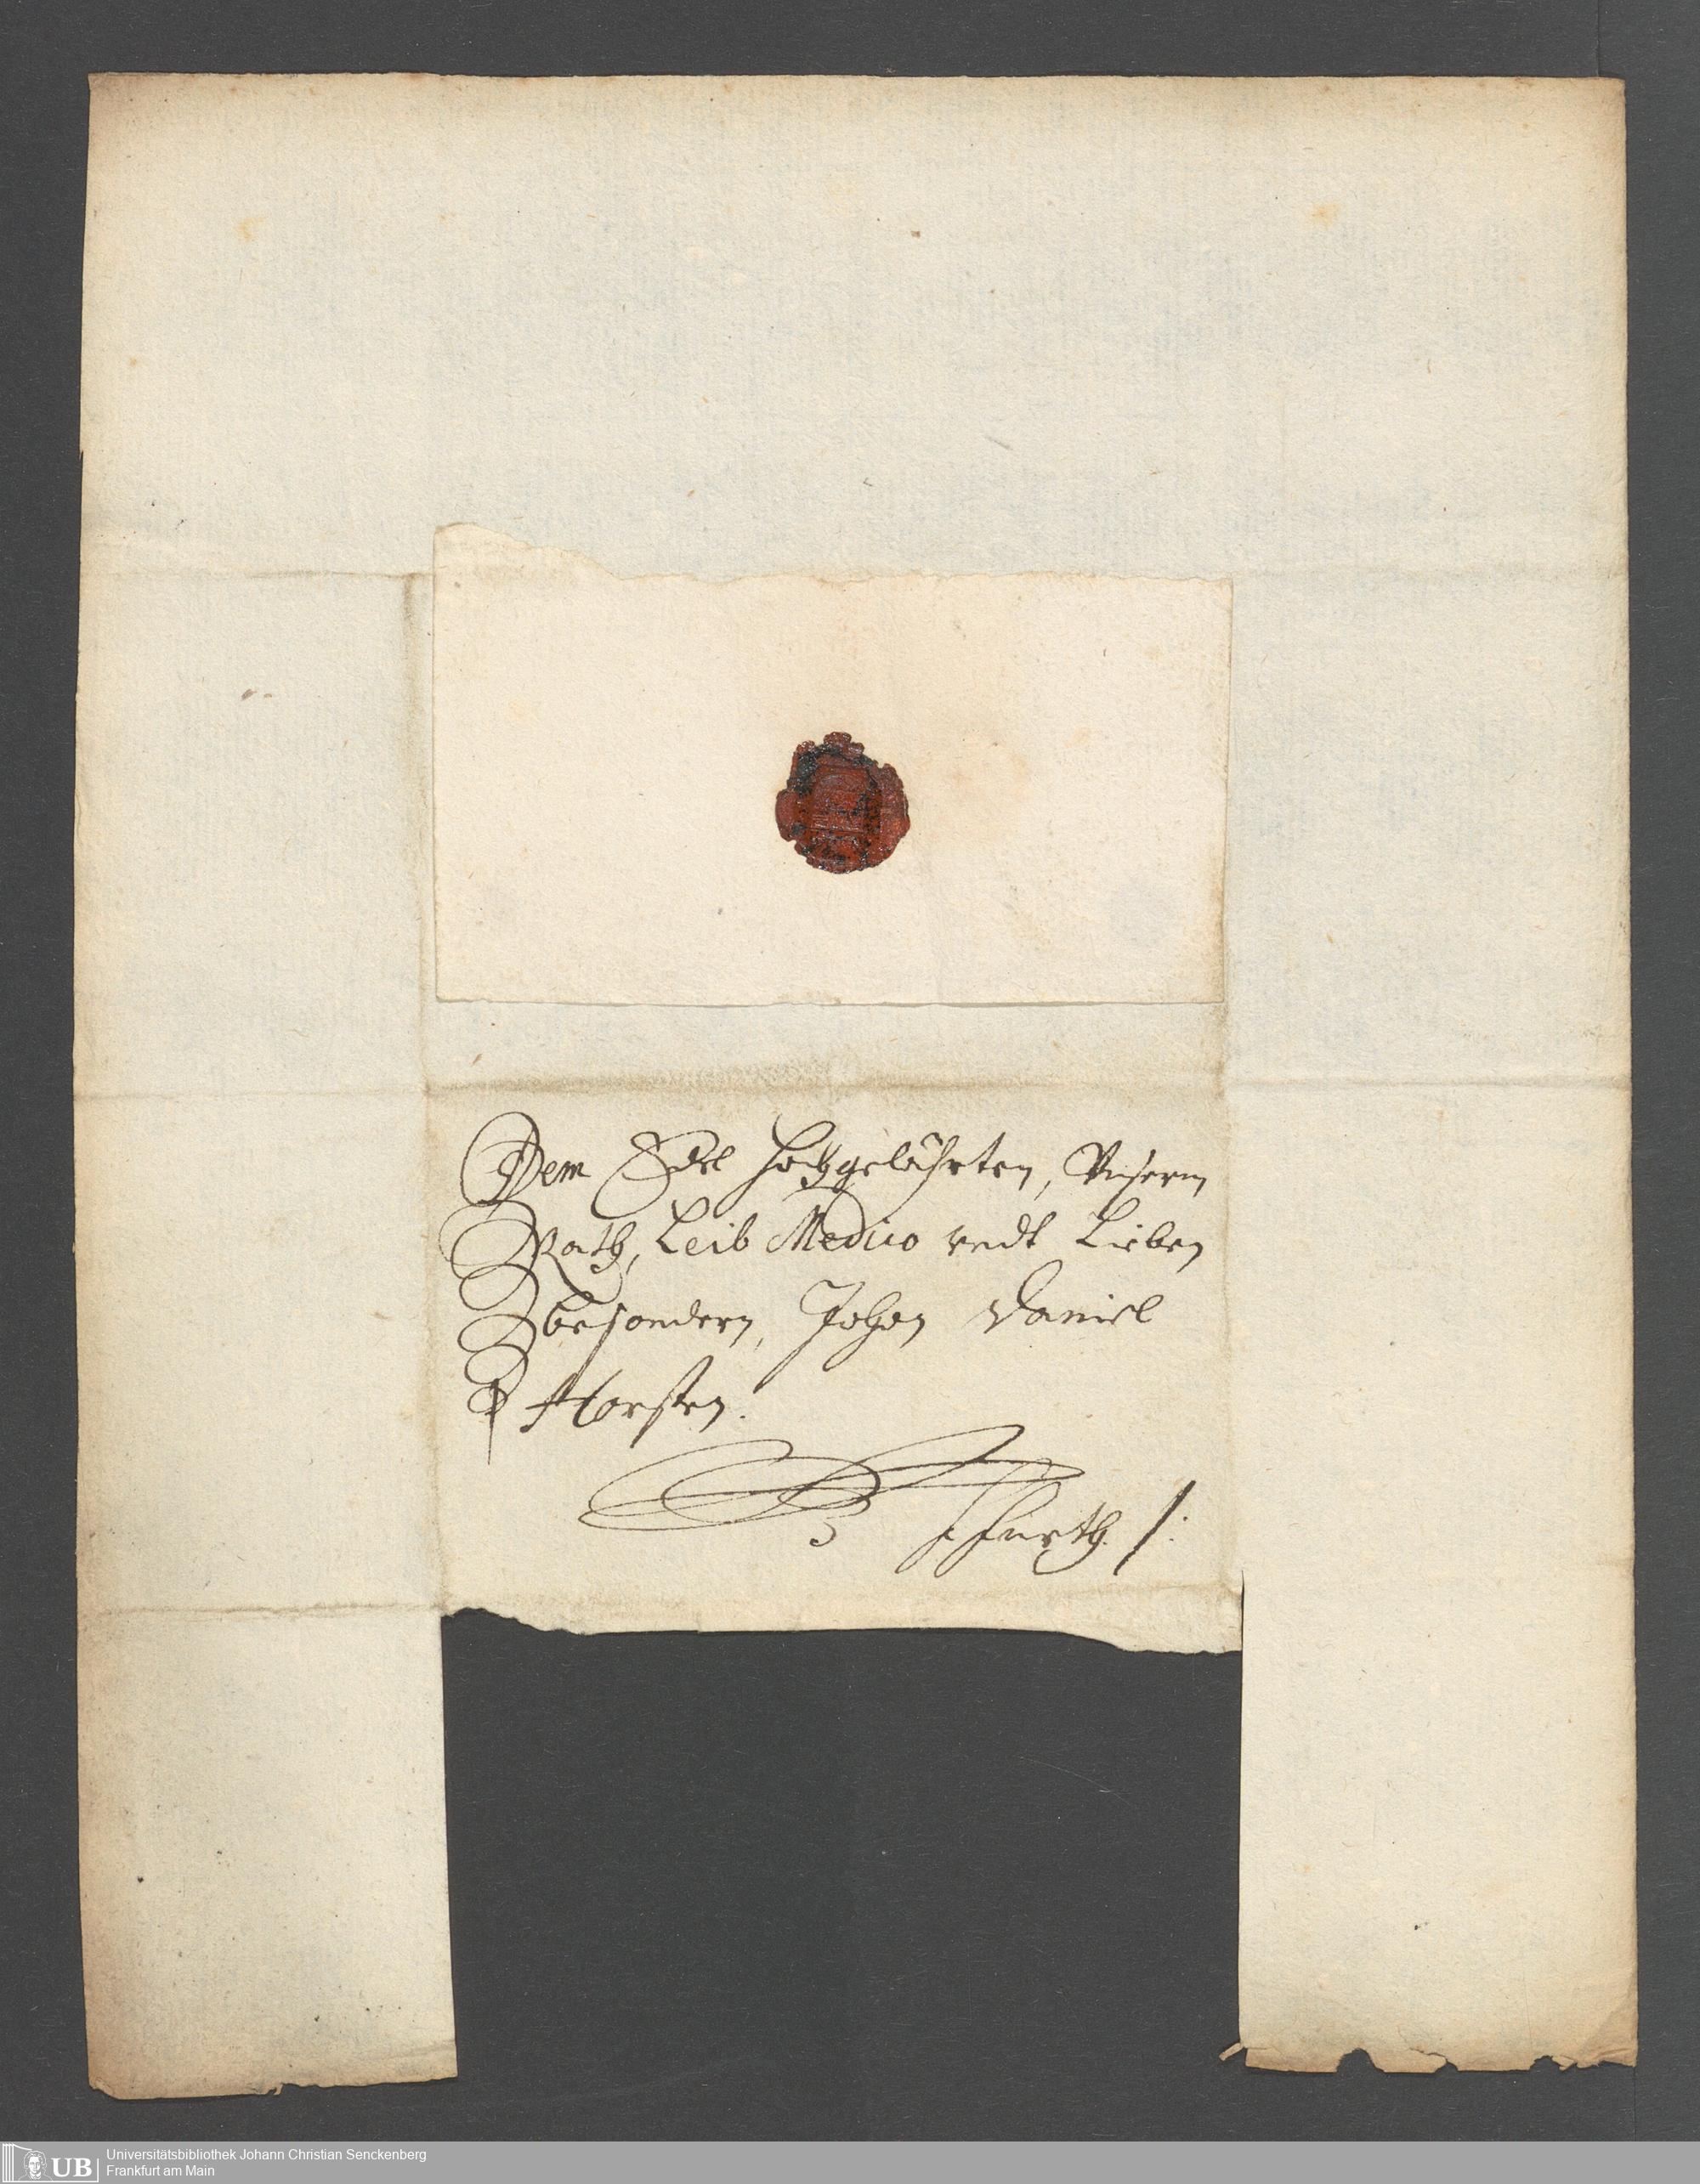 Dem Edel Hochgelährten, Vnserm
Rath, Leib Medico vndt Lieben
besondern, Johan Daniel
Horsten.
Ffurth.
UB
Universitätsbibliothek Johann Christian Senckenberg
Frankfurt am Main